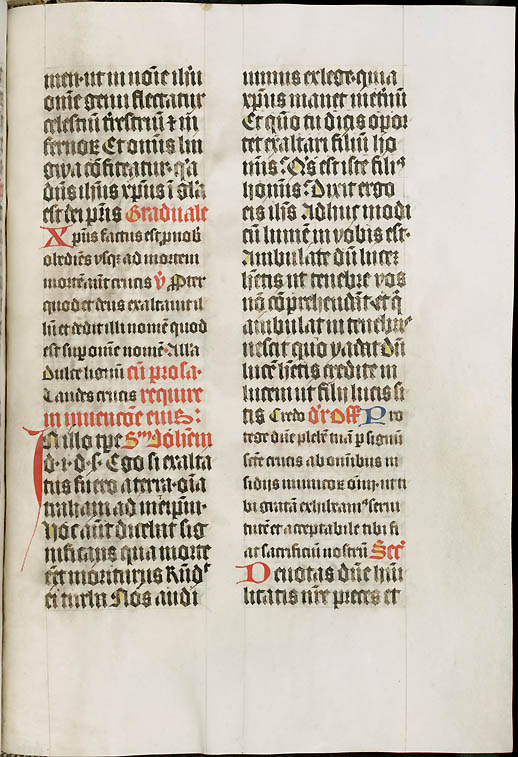 men· ut in no͞ie ih͞u
om͞e genu flectatur
celestiu͞ t͞restriu͞ ⁊ in
fernoꝝ Et omnis lin
gwa co͞fiteatur· q͞a
dn͞s ih͞us xp͞us i͞ gl͞a
est dei p͞ris Graduale
Xp͞us factus est p͞ nob͞
obedie͞s vsqꝫ ad mortem
morte͞ aut͞ crucis ℣ Pter
quod et deus exaltauit il
lu͞ et dedit illi nome͞ quod
est sup͞ om͞e nome͞· Alla
Dulce lignu͞ cu͞ prosa·
Laudes crucis require
in inuenco͞e eius:
In illo tp͞e Sm͞ Joh͞em
d· i· d· s· Ego si exalta
tus fuero a terra· om͞ia
traham ad meip͞m·
Hoc aut͞ dicebat sig
nificans qua morte
e͞et moriturus Rn͞d
ei turba Nos audi
uimus ex lege· quia
xp͞us manet in et͞nu͞
Et quo͞ tu dicis opor
tet exaltari filiu͞ ho
minis? Q͞s est iste filiꝰ
hominis? Dixit ergo
eis ih͞s Adhuc modi
cu͞ lumen in vobis est·
Ambulate du͞ luce͞
h͞etis ut tenebre vos
no͞ co͞prehenda͞t· et q͞
ambulat in tenebris
nescit quo vadat Du͞
luce͞ h͞etis credite in
lucem ut filii lucis si
tis Credo d͞r Off͞ Pro
tege dn͞e plebe͞ tua͞ p͞ signu͞
sc͞te crucis ab omnibus in
sidiis inimicoꝝ om͞i· ut ti
bi grata͞ exhibeamꝰ serui
tute͞ et acceptabile tibi fi
at sacrificiu͞ nostru͞ Sec͞
Deuotas dn͞e hu͞i
litatis nr͞e preces et